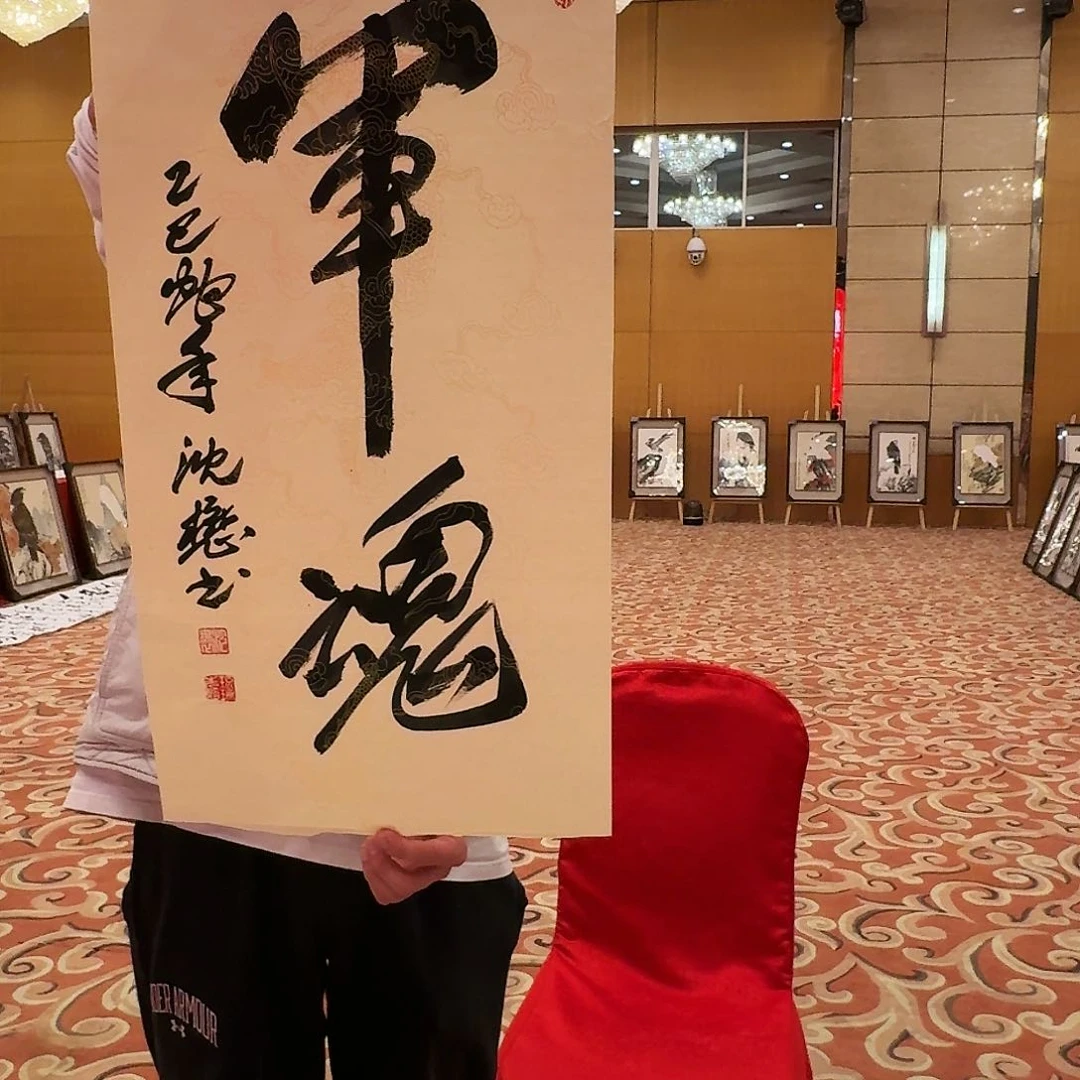 軍魂
乙巳蛇年
沈懋书
DER ARMOUR